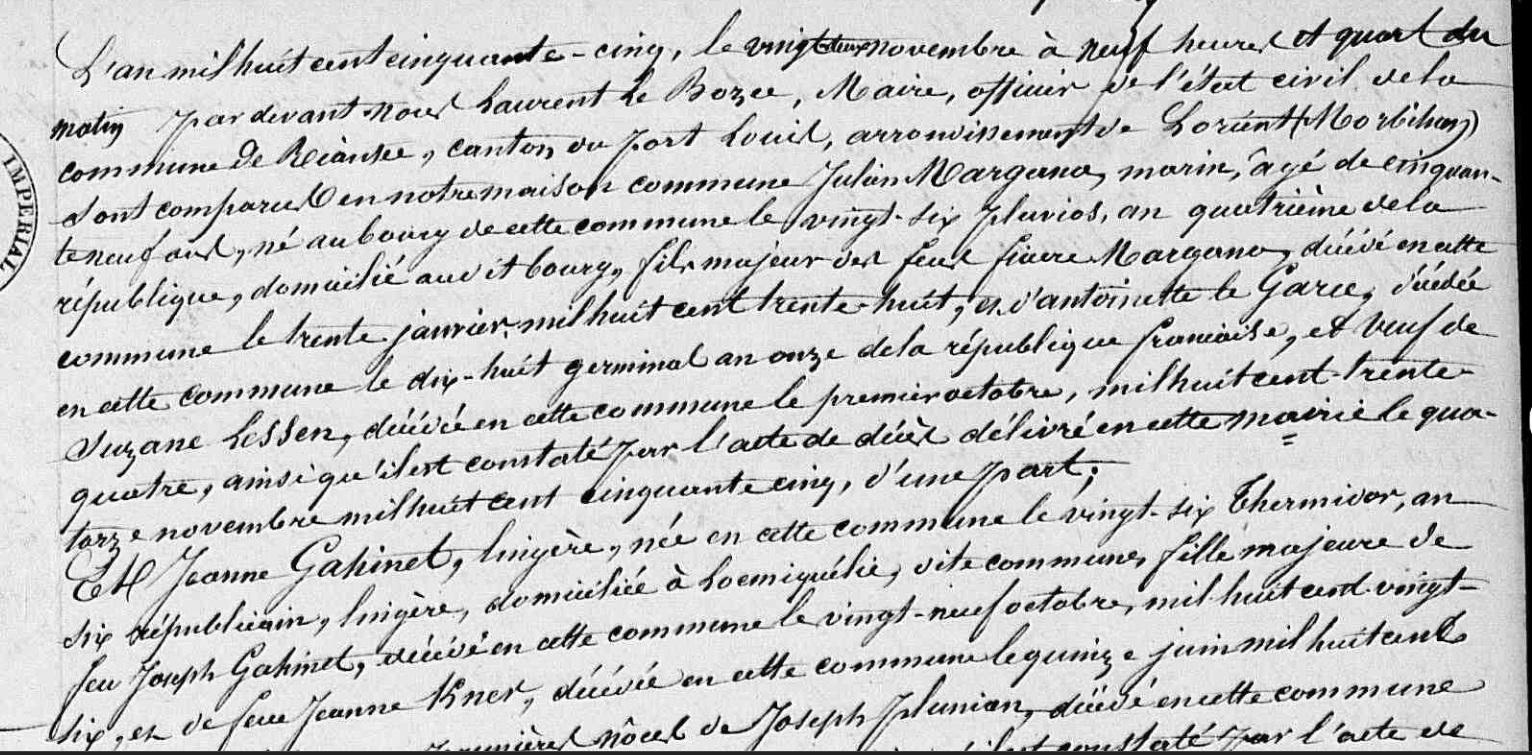 L'an mil huit cent cinquante-cinq, le vingt deux novembre à neuf heures et quart du
matin par devant nous Laurent Le Bozec, Maire, officier de l'état civil de la
commune de Riantec, canton du Port Louis, arrondissement de Lorient (Morbihan)
IMPERIAL
sont comparus en notre maison commune Julien Margana, marin, âgé de cinquan-
te neuf ans, né au bourg de cette commune le vingt-six pluvios, an quatrième de la
république, domicilié audit bourg, fils majeur des feus fiacre Margana, décédé en cette
commune le trente janvier mil huit cent trente-huit, et d'antoinette le Garec, décédée
en cette commune le dix-huit germinal an onze de la république française, et veuf de
Suzane Lessen, décédé en cette commune le premier octobre, mil huit cent trente
quatre, ainsi qu'il est constaté par l'acte de décès délivré en cette mairie le qua-
torze novembre mil huit cent cinquante cinq, d'une part;
Et Jeanne Gahinet, lingère, née en cette commune le vingt-six thermidor, an
six républicain, lingère, domiciliée à Locmiquélic, dite commune, fille majeure de
feu Joseph Gahinet, décédé en cette commune le vingt-neuf octobre, mil huit cent vingt-
six, et de feue Jeanne Kner, décédée en cette commune le quinze juin mil huit cent
premières nôces de Joseph Plunian, décédé en cette commune
est constaté par l'acte de